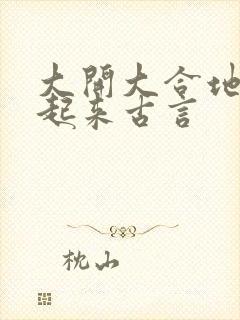 大開大合地
起来古言
枕山